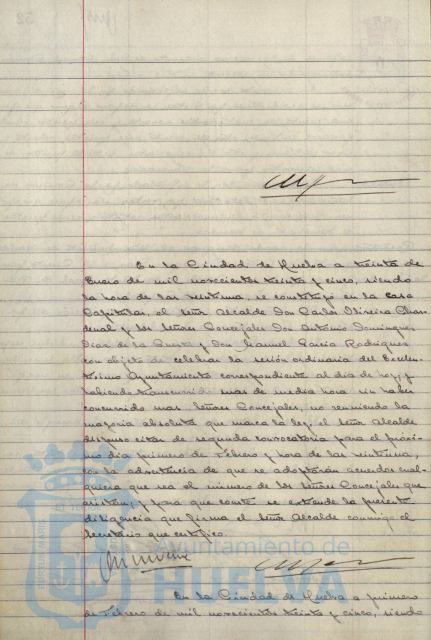 En la Ciudad de Huelva a treinta de
Enero de mil novecientos treinta y cinco, siendo
la hora de las veintiuna, se constituyó en la Casa
Capitular, el Señor Alcalde Don Carlos Oliveira Chardenal
y los Señores Concejales Don Antonio Dominguez
Diaz de la Puerta y Don Manuel Garcia Rodriguez
con objeto de celebrar la sesión ordinaria del Excelentisimo
Ayuntamiento correspondiente al dia de hoy, y
habiendo transcurrido mas de media hora sin haber
concurrido mas Señores Concejales, no reuniendo la
mayoria absoluta que marca la ley, el Señor Alcalde
dispuso citar de segunda convocatoria para el próximo
dia primero de Febrero y hora de las veintiuna,
con la advertencia de que se adoptarán acuerdos cualquiera
que sea el número de los Señores Concejales que
asistan; y para que conste se extiende la presente
diligencia que firma el Señor Alcalde conmigo el
Secretario que certifico.
Ayuntamiento de
HUELVA
En la Ciudad de Huelva a primero
de Febrero de mil novecientos treinta y cinco, siendo